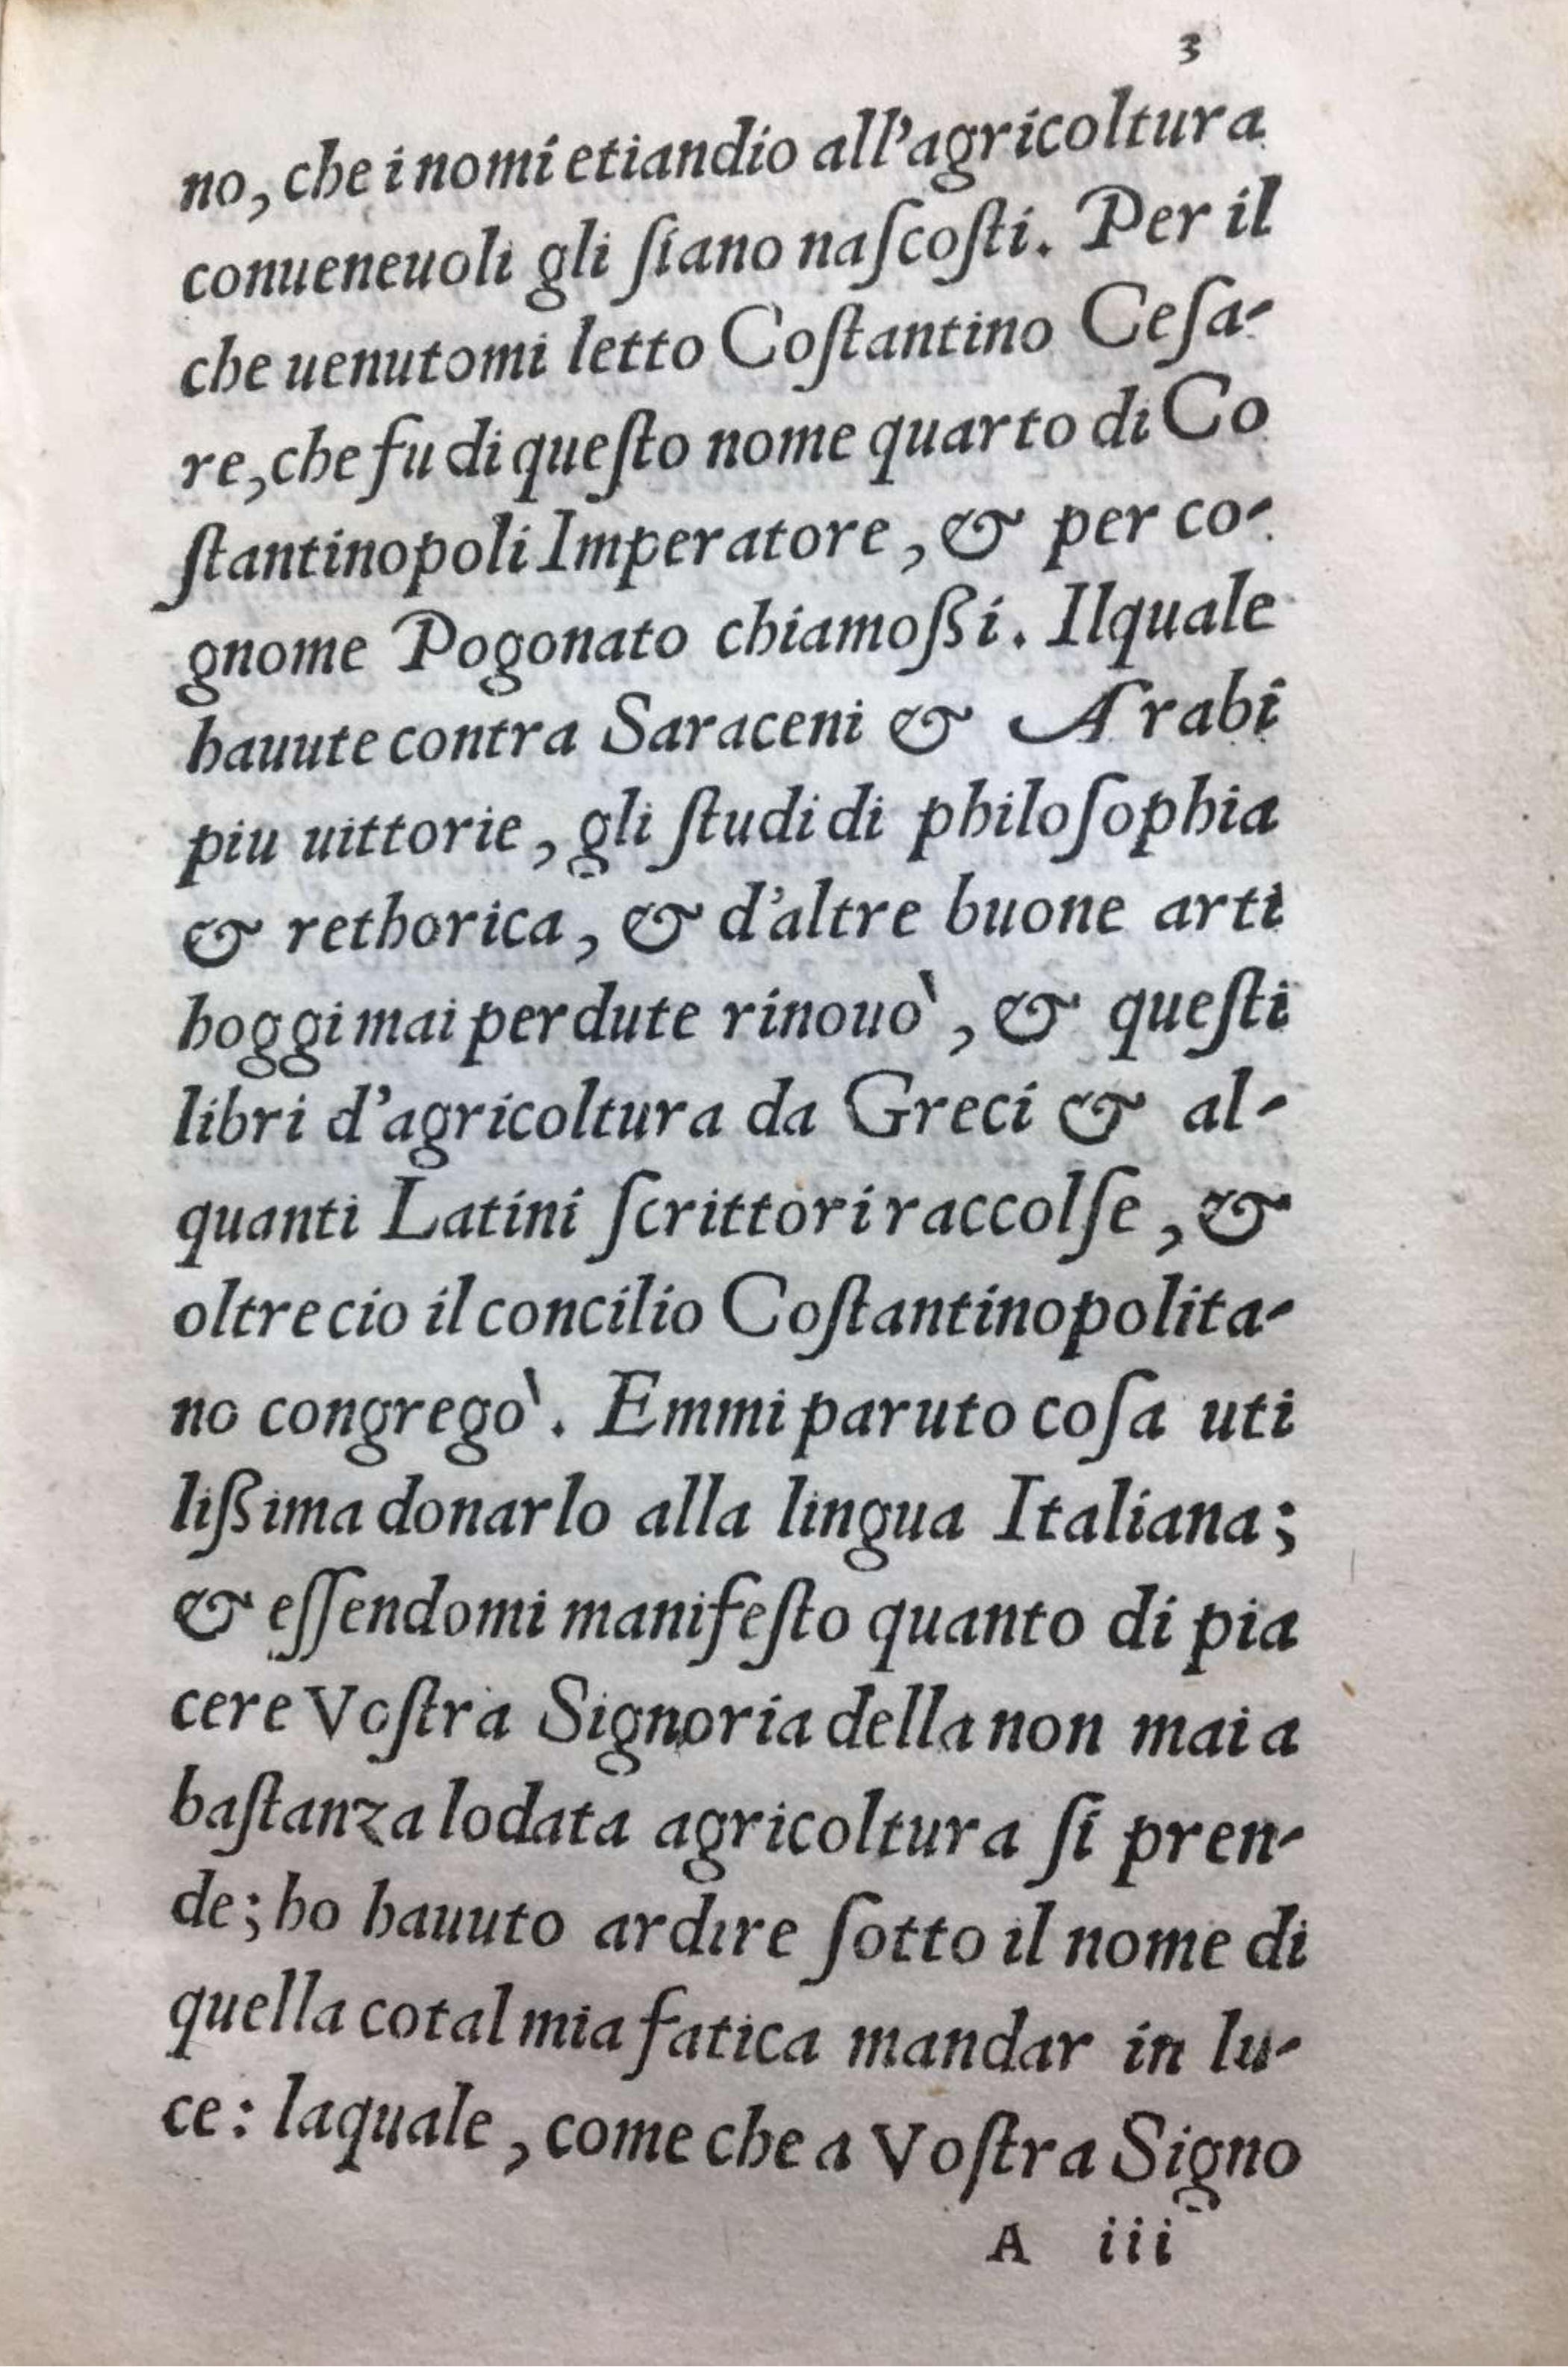 3
no, che i nomi etiandio all'agricoltura
conueneuoli gli ſiano naſcoſti. Per il
che uenutomi letto Coſtantino Ceſa-
re, che fu di queſto nome quarto di Co
ſtantinopoli Imperatore, & per co-
gnome Pogonato chiamoßi. Ilquale
hauute contra Saraceni & Arabi
piu uittorie, gli ſtudi di philoſophia
& rethorica, & d'altre buone arti
hoggimai perdute rinouò, & queſti
libri d'agricoltura da Greci & al-
quanti Latini ſcrittori raccolſe, &
oltre cio il concilio Coſtantinopolita-
no congregò. Emmi paruto coſa uti
lißima donarlo alla lingua Italiana;
& eſſendomi manifeſto quanto di pia
cere Voſtra Signoria della non mai a
baſtanza lodata agricoltura ſi pren-
de; ho hauuto ardire ſotto il nome di
quella cotal mia fatica mandar in lu-
ce: laquale, come che a Voſtra Signo
A iii